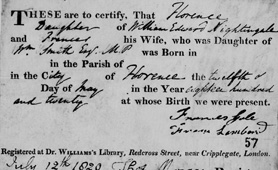 THESE are to certify, That Florence
Daughter of William Edward Nightingale
and Frances his Wife, who was Daughter of
Wm. Smith Esqr. M.P. was Born in
in the Parish of
in the City of Florence the twelfth of
Day of May in the Year eighteen hundred
and twenty at whose Birth we were present.
Frances
57
Registered at Dr. WILLIAMS's Library, Redcross Street, near Cripplegate, London.
July 12th 1820